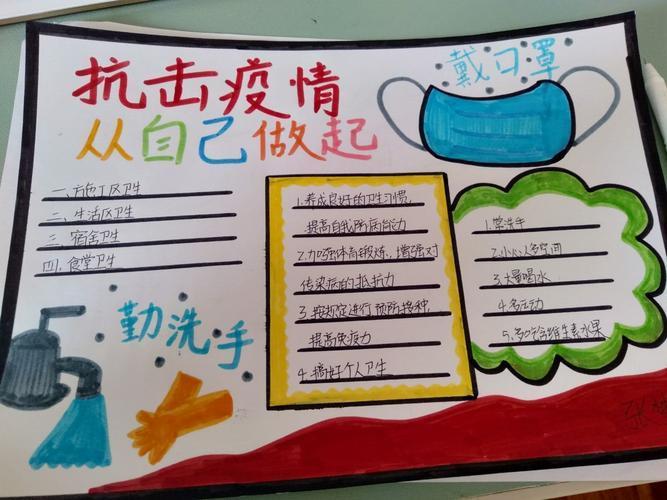 抗击疫情
从自己做起
戴口罩
一、方色工区卫生
二、生活区卫生
三、宿舍卫生
四、食堂卫生
勤洗手
1.养成良好的卫生习惯,
提高自我防病能力
2.加强体育锻炼、增强对
传染病的抵抗力
3.按规定进行预防接种,
提高免疫力
4.搞好个人卫生
1.常洗手
2.小心人多空间
3.大量喝水
4.多运动
5.多吃含维生素水果
张